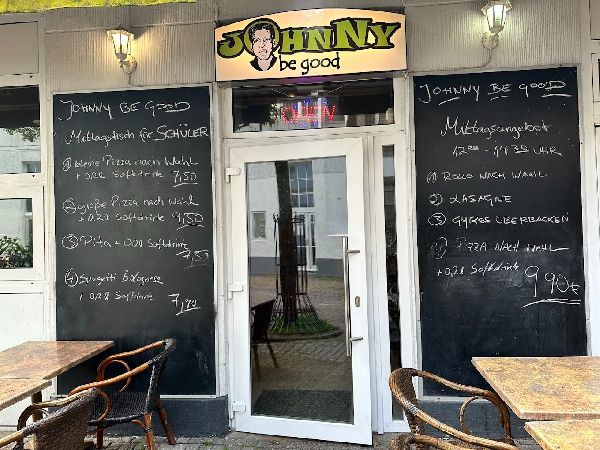 JOHNNY
be good
OPEN
JOHNNY BE GOOD
Mittagstisch für SCHÜLER
① kleine Pizza nach Wahl
+ 0,2l Softdrink 7,50
② große Pizza nach Wahl
+ 0,2l Softdrink 9,50
③ Pita + 0,2l Softdrink
7,50
④ Spagetti Bolognese
+ 0,2l Softdrink 7,90
JOHNNY BE GOOD
Mittagsangebot
UHR
① ROLLO NACH WAHL
② LASAGNE
③ GYROS ÜBERBACKEN
④ PIZZA NACH WAHL
+ 0,2l Softdrink 9,90€